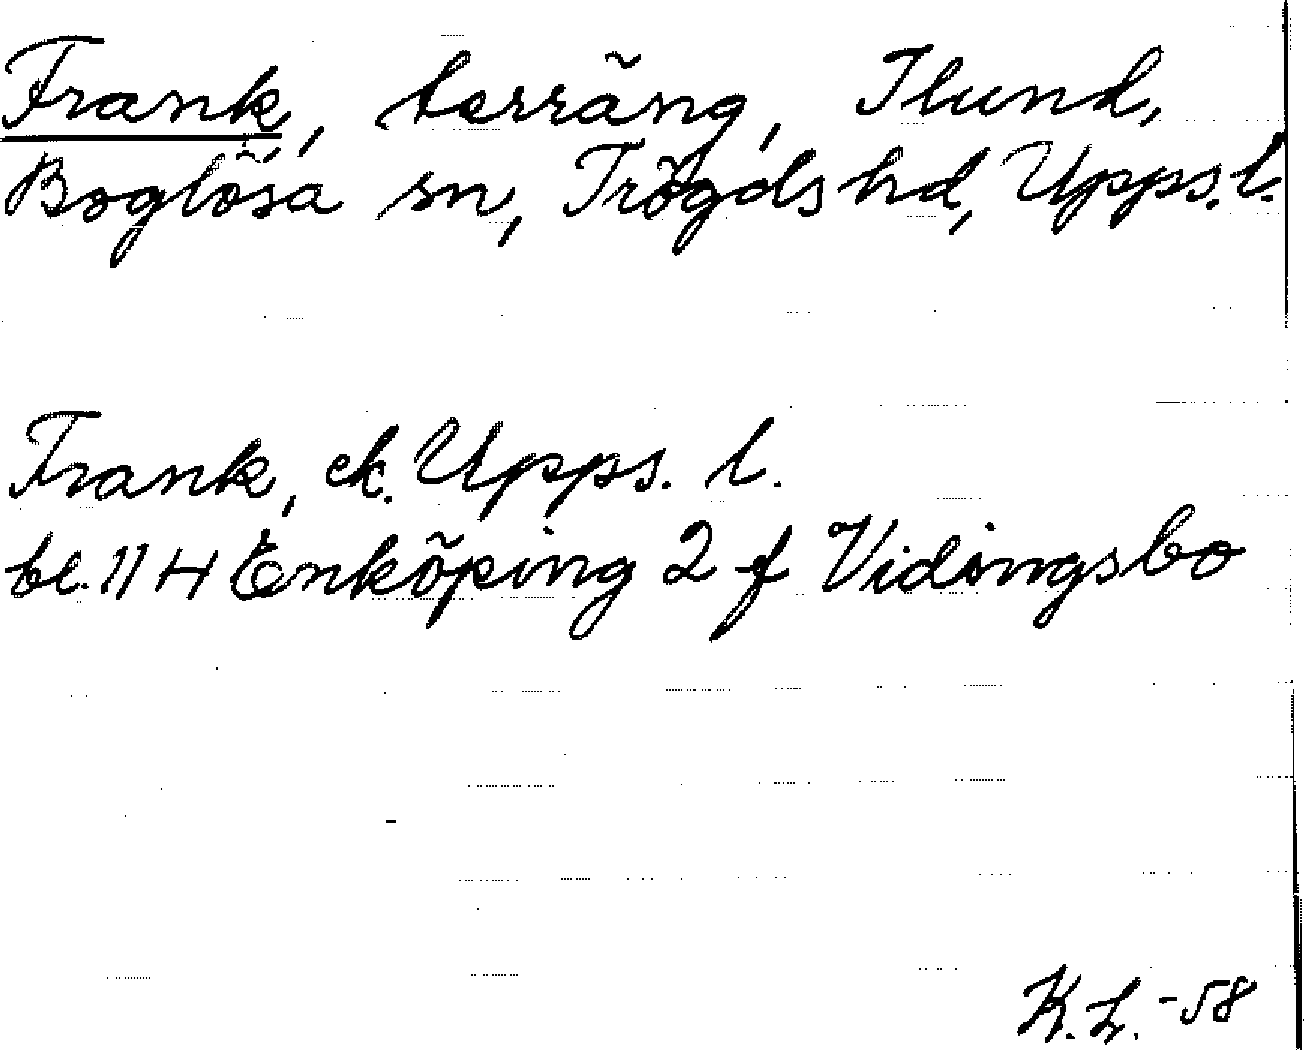 Frank, terräng, Ilund,
Boglösa sn, Trögds hd, Upps. l.
Frank, ek. Upps. l.
bl. 11 H Enköping 2 f Vidingsbo
K. L. -58